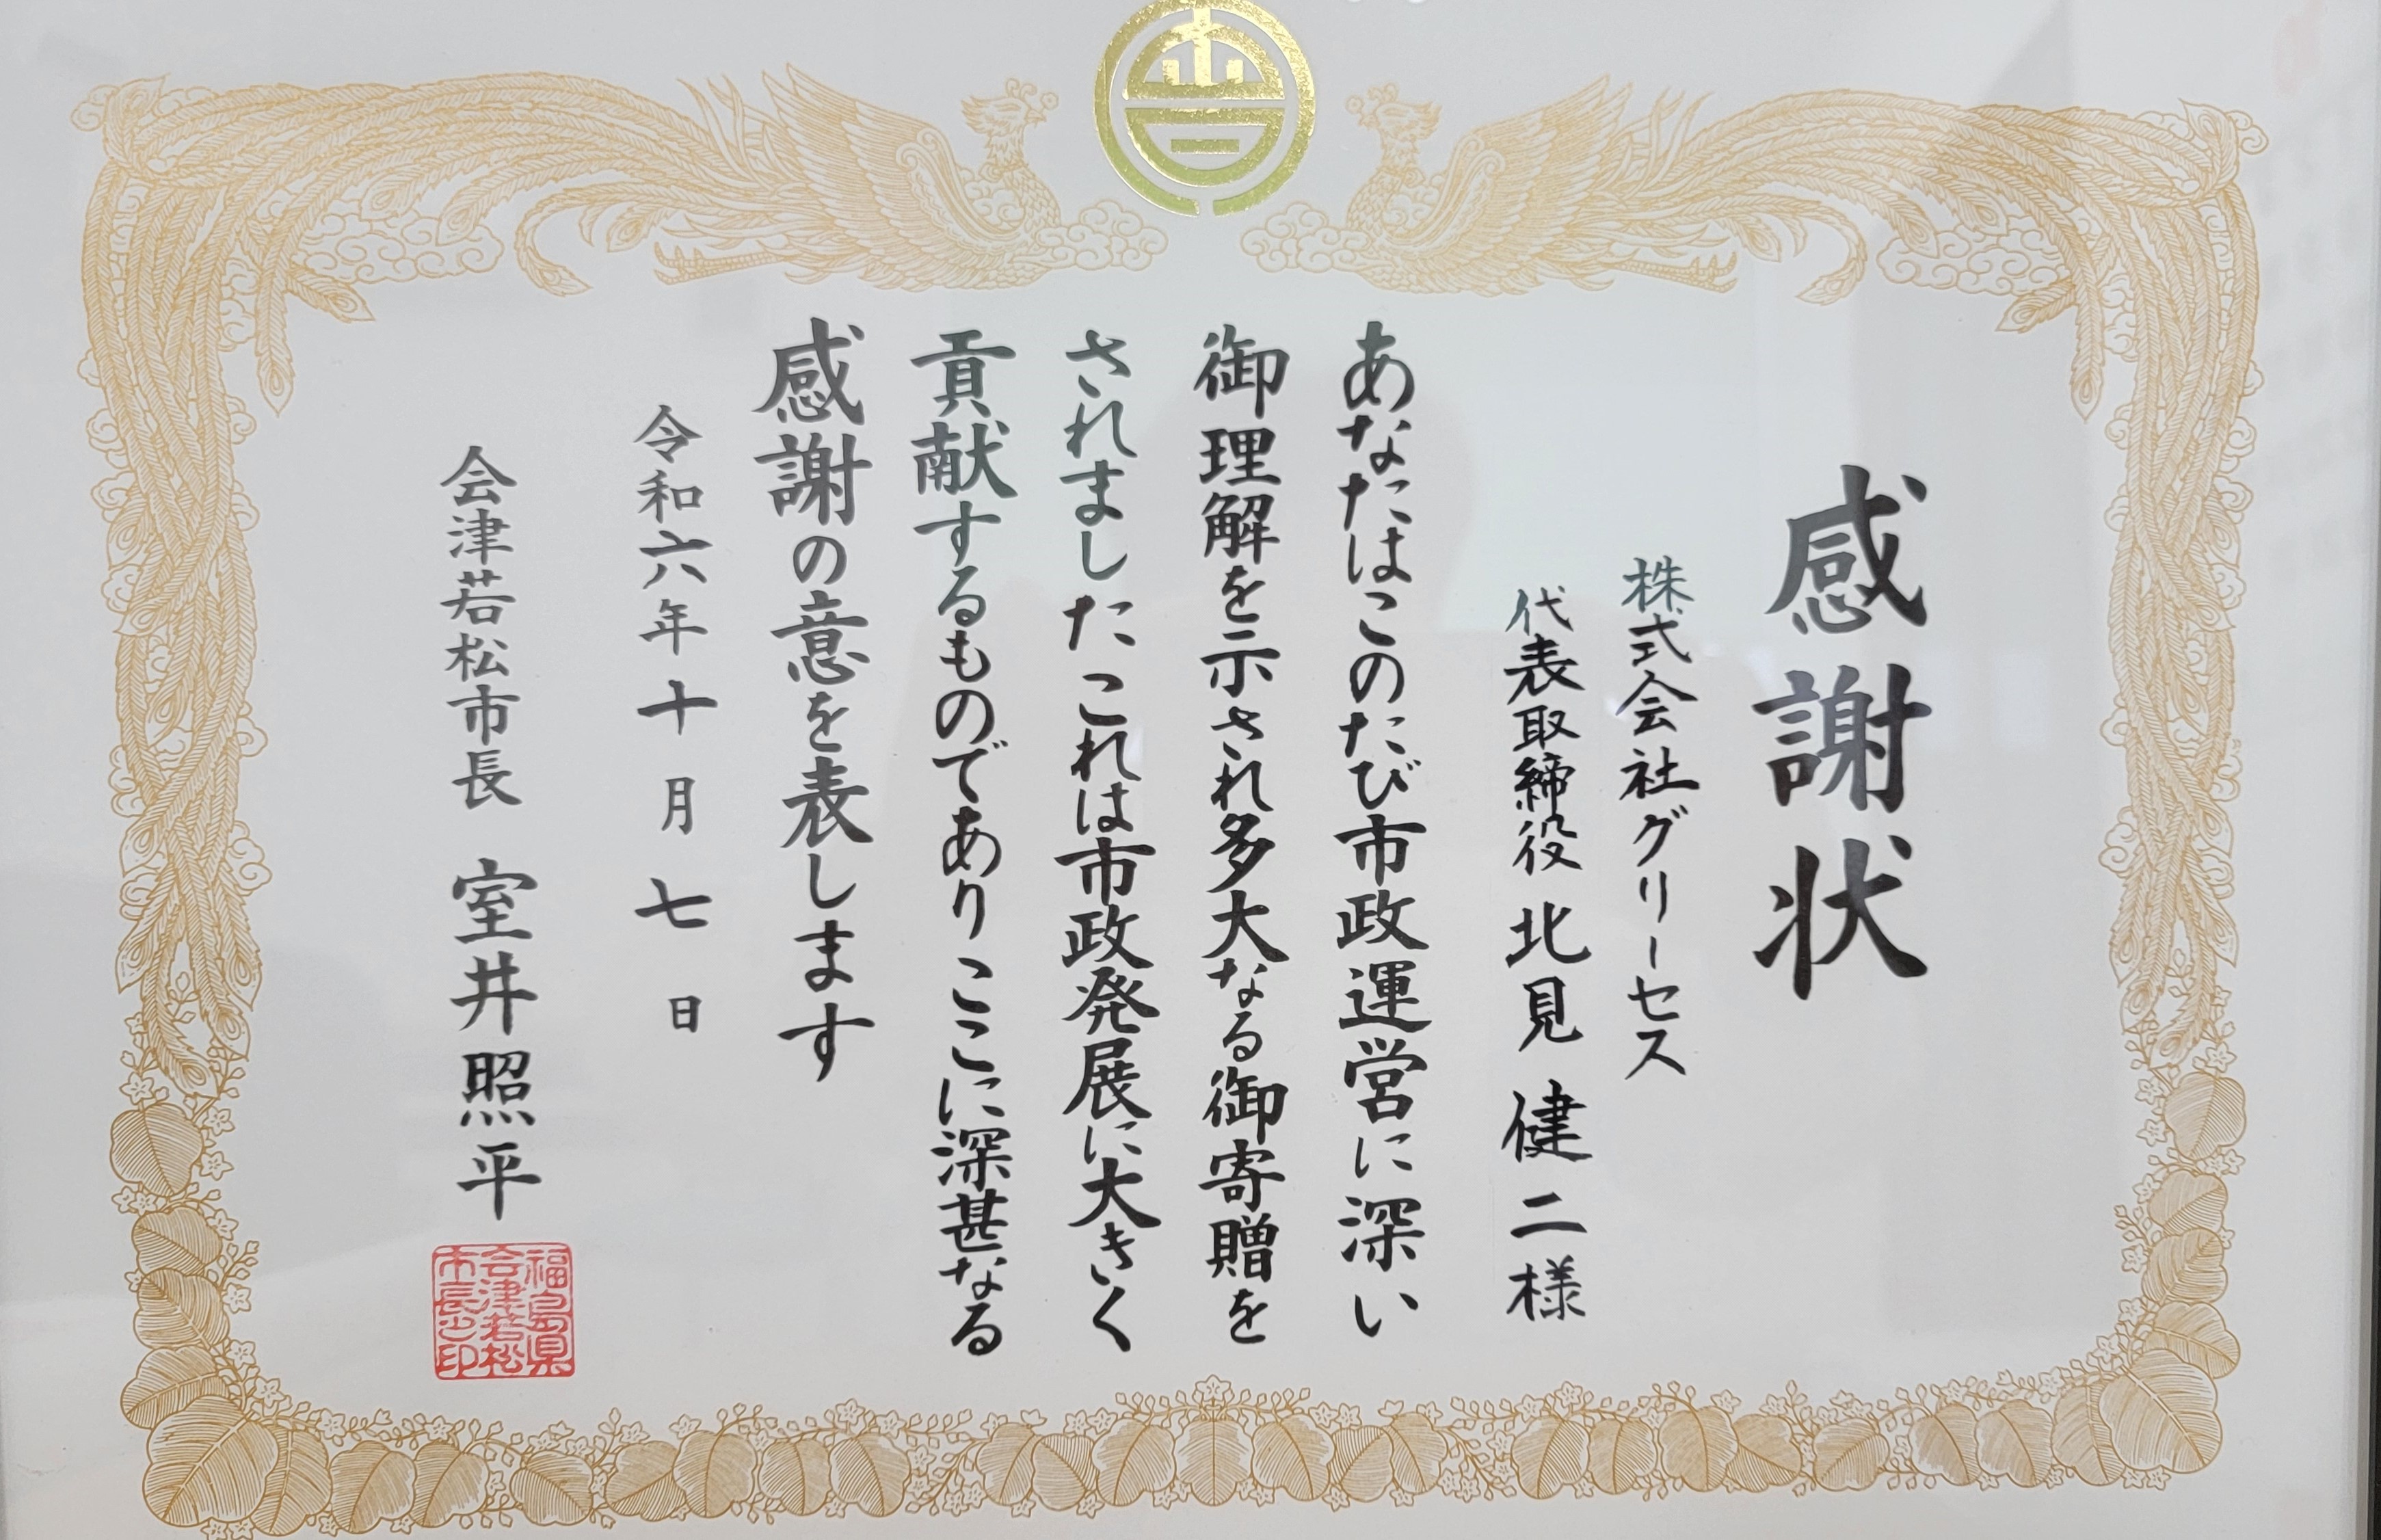 感謝状
株式会社グリーセス
代表取締役 北見 健二 様
あなたはこのたび市政運営に深い
御理解を示され多大なる御寄贈を
されました これは市政発展に大きく
貢献するものであり ここに深甚なる
感謝の意を表します
令和六年十月七日
会津若松市長 室井照平
福島県
会津若松
市長之印